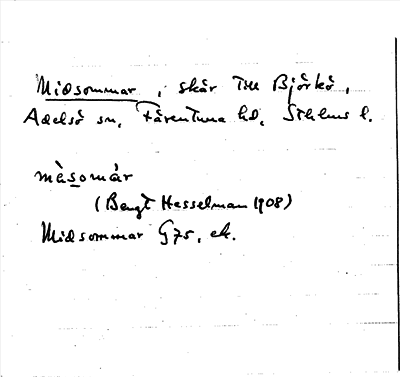 Midsommar, skär till Björkö,
Adelsö sn, Färentuna hd, Sthlms l.
mèsomár
(Bengt Hesselman 1908)
Midsommar G75, ek.